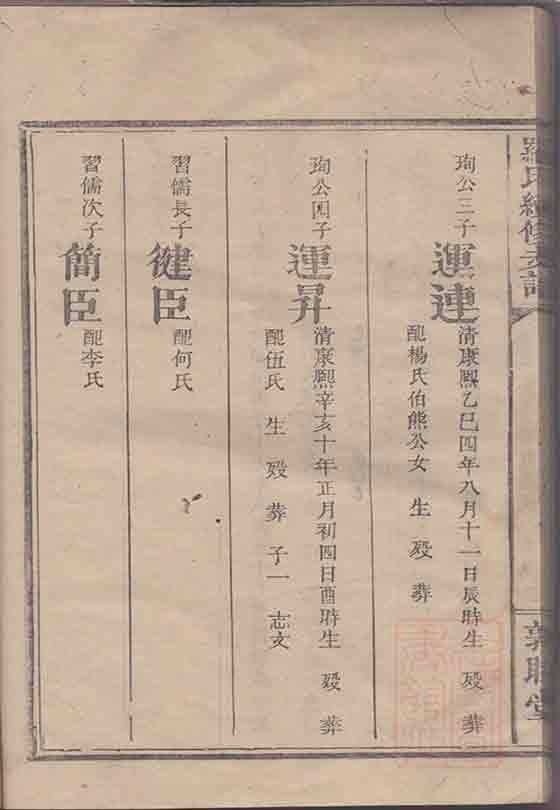 羅氏續修支譜
敦睦堂
珣公三子
運連
清康熙乙巳四年八月十一日辰時生 殁 葬
配楊氏伯熊公女 生 殁 葬
珣公四子
運昇
清康熙辛亥十年正月初四日酉時生 殁 葬
配伍氏 生 殁 葬 子一 志文
習儒長子
健臣
配何氏
習儒次子
簡臣
配李氏